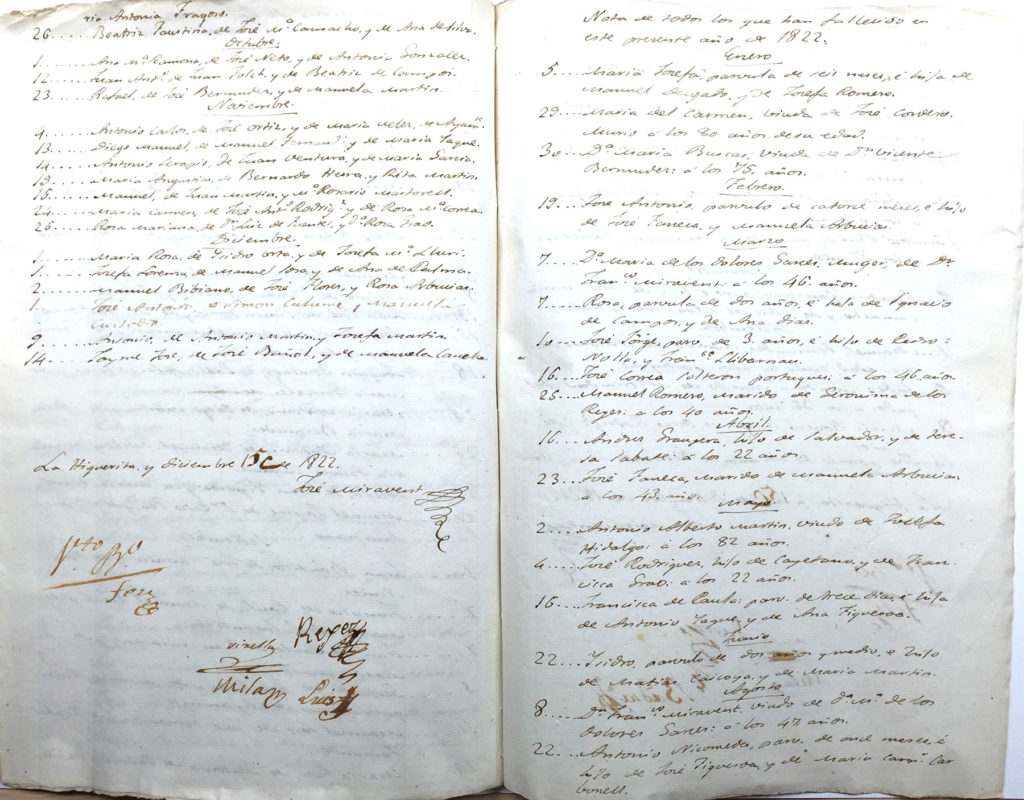 ria Antonia Frayoso.
26...... Beatriz Faustina, de José Mª Camacho, y de Ana de Silva.
Octubre.
1....... Ana Mª Ramona, de José Neto, y de Antonia Gonzalez.
12...... Juan Antº de Juan Folch, y de Beatriz de Campos.
23...... Rafael, de José Bermudez, y de Manuela Martin.
Noviembre.
4....... Antonio Carlos, de José Ortiz, y de Maria
13...... Diego Manuel, de Manuel y de Maria Jaque.
14...... Antonio Serapio, de Juan Ventura, y de Maria Garcia.
15...... Maria Angustia, de Bernardo y Rita Martin.
16...... Manuel, de Juan Martin, y Mª Rosario Martorell.
24...... Maria Carmen, de José Antº Rodrigz y de Rosa Mª Correa.
26...... Rosa Mariana, de Dn Luis de Fuentes, y Dª Rosa Grao.
Diciembre.
1....... Maria Rosa, de Isidro Orta, y de Josefa Mª Lluri.
1....... Josefa Lorenza, de Manuel Sosa, y de Ana de Palma.
2....... Manuel Bibiano, de José Flores, y Rosa Arbucias.
1. José Antonio de Simon y Manuela
Custodio.
9....... Antonio, de Antonio Martin, y Josefa Martin.
14...... Jayme José, de José Bañols, y de Manuela Caneta.
La Higuerita, y diciembre 15 de 1822.
José Miravent
Vto Bo
Reyes
Milan Luis
Nota de todos los que han fallecido en
este presente año de 1822.
Enero
5..... Maria Josefa, parvula de seis meses, é hija de
Manuel Delgado, y de Josefa Romero.
29..... Maria del Carmen, viuda de José Cordero.
Murio á los 80 años de su edad.
30.... Dª Maria Buscas, viuda de Dn Vicente
Bermudez: á los 75 años.
Febrero.
19.... José Antonio, parvulo de catorce meses, é hijo
de José Faneca, y Manuela Arbucias.
Marzo
7..... Dª Maria de los Dolores Sanes, Muger, de Dn
Franco Miravent: á los 46 años.
7..... Rosa, parvula de dos años, é hija de Ignacio
de Campos, y de Ana Dias.
10.... José Jorge, parvo de 3 años, é hijo de Pedro
Nolla, y Franca Lliberman.
16.... José Correa solteron portugues: á los 46 años.
25.... Manuel Romero, Marido de Geronima de los
Reyes: á los 40 años.
Abril.
16.... Andres hijo de Salvador, y de Tere-
sa Sabate: á los 22 años.
23.... José Faneca, Marido de Manuela Arbucias
á los 43 años.
Mayo.
2..... Antonio Alberto Martin, viudo de Josefa
Hidalgo: á los 82 años.
4..... José Rodriguez, hijo de Cayetano, y de Fran-
cisca Grao: á los 22 años.
16.... Francisca de Paula: parv. de trece dias, é hija
de Antonio Jaque, y de Ana Figueroa.
Junio
22.... Isidro, parvulo de dos años y medio, é hijo
de Matias y de Maria Martin.
Agosto
8..... Dn Franco Miravent, viudo de Dª Mª de los
Dolores Sanes: á los 47 años.
22.... Antonio Nicomedes, parv. de once meses, é
hijo de José Figueroa, y de Maria Carm. Car
bonell.